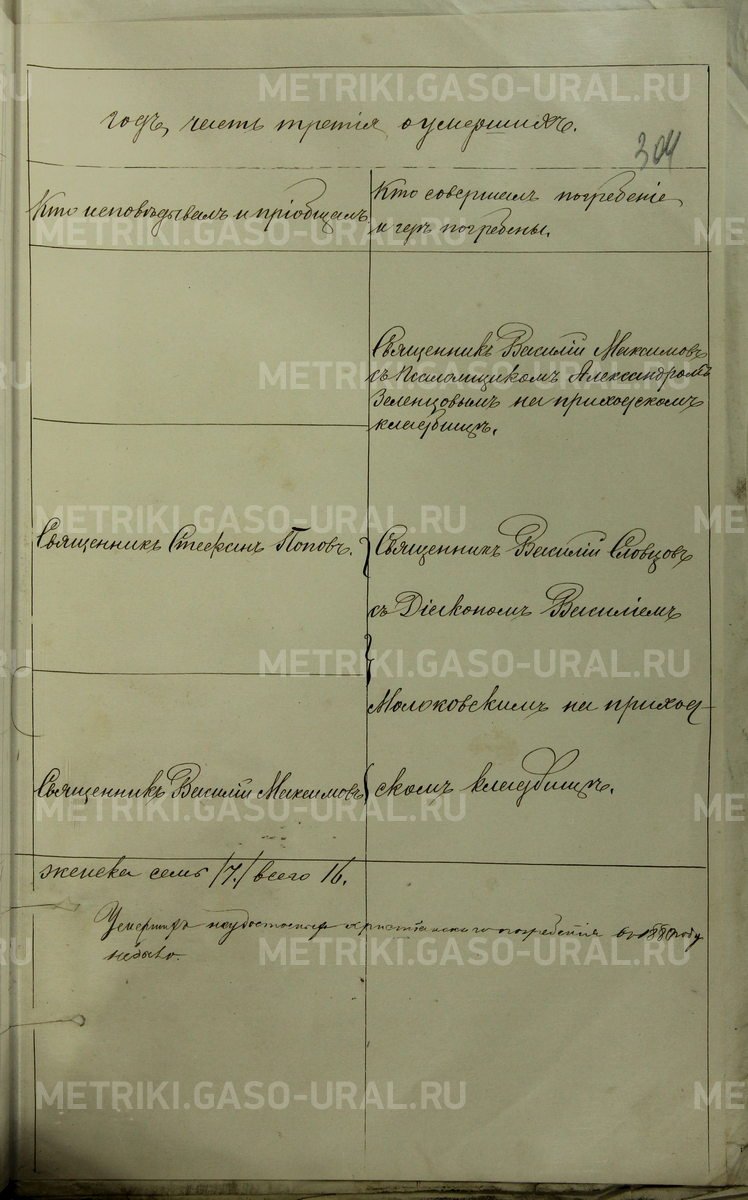 годъ, часть третія, о умершихъ.
304
Кто исповѣдывалъ и пріобщалъ
Кто совершалъ погребеніе
и гдѣ погребены.
Священникъ Василій Максимовъ
съ Псаломщикомъ Александромъ
Зеленцовымъ на приходскомъ
кладбищѣ.
Священникъ Стефанъ Поповъ.
Священникъ Василій Словцовъ
съ Діакономъ Василіемъ
Молоковскимъ на приход-
скомъ кладбищѣ.
Священникъ Василій Максимовъ
женска семь /7./ всего 16.
Умершихъ неудостоеныхъ христіанскаго погребенія въ 1880 году
небыло.
METRIKI.GASO-URAL.RU